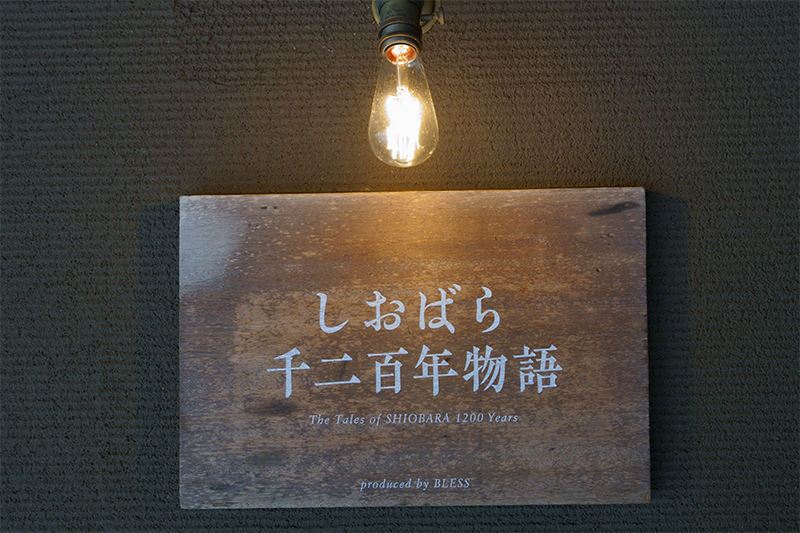 しおばら
千二百年物語
The Tales of SHIOBARA 1200 Years
produced by BLESS